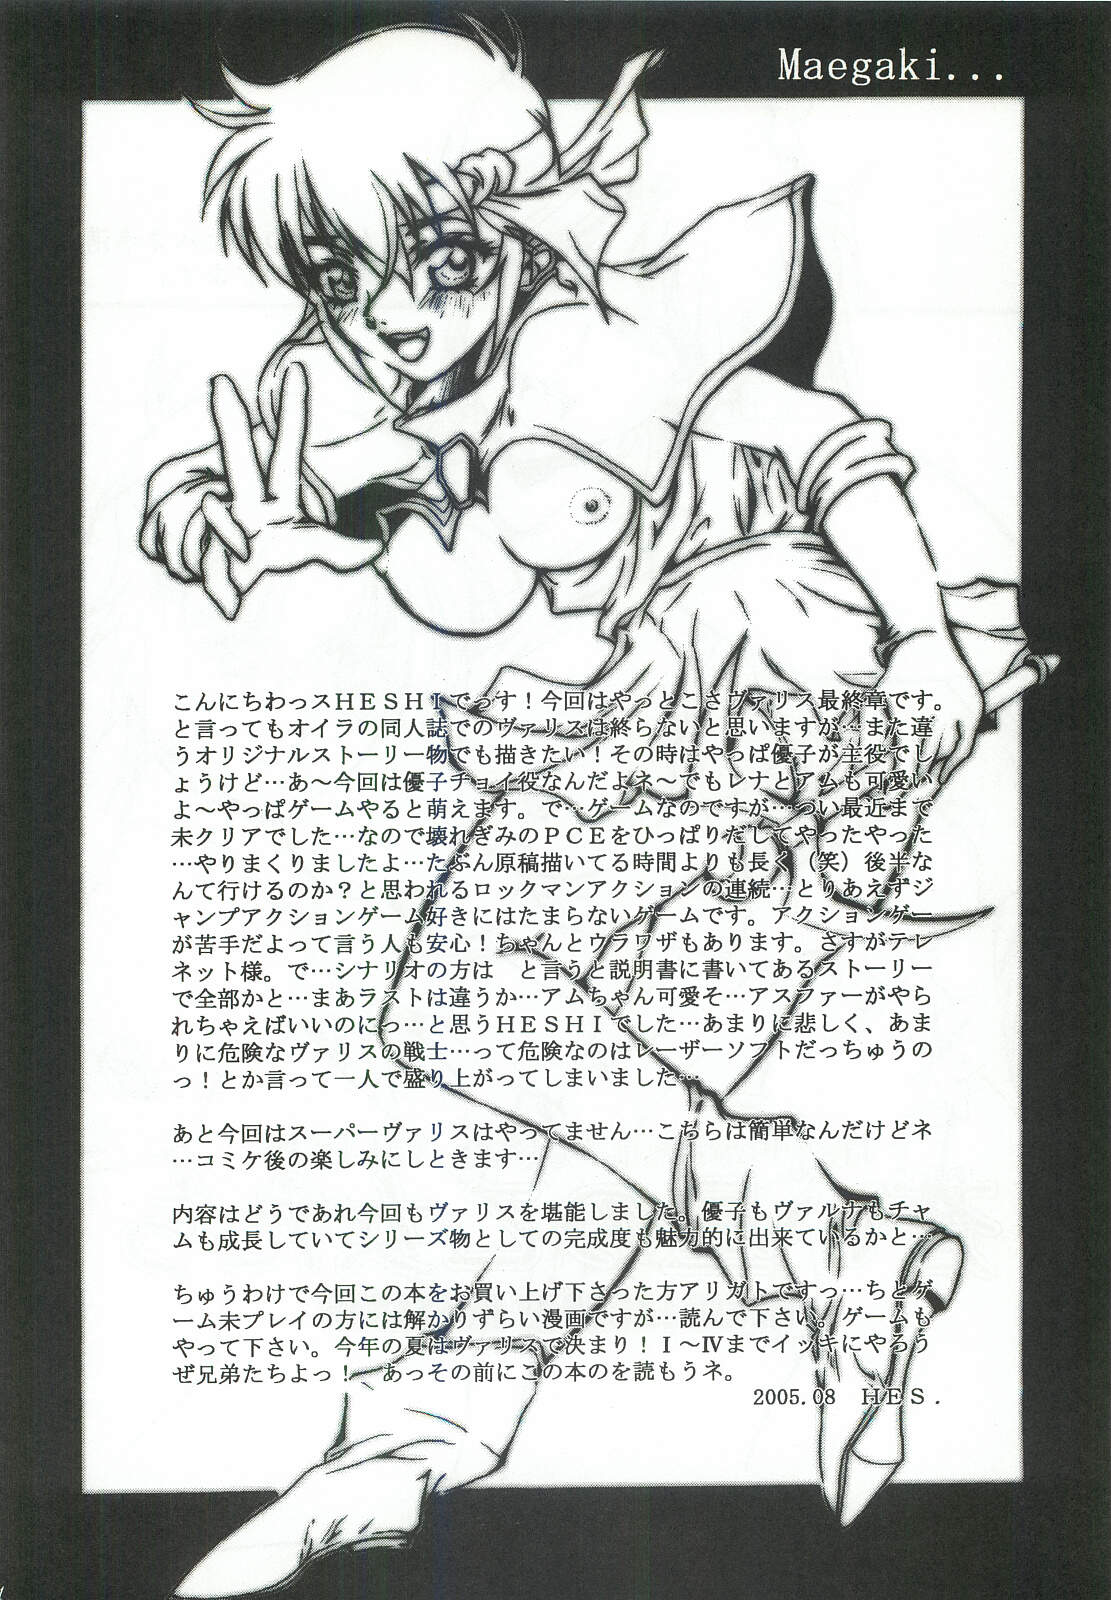 Maegaki...
こんにちわっスＨＥＳＨＩでっす！今回はやっとこさヴァリス最終章です。
と言ってもオイラの同人誌でのヴァリスは終らないと思いますが…また違
うオリジナルストーリー物でも描きたい！その時はやっぱ優子が主役でし
ょうけど…あ～今回は優子チョイ役なんだよネ～でもレナとアムも可愛い
よ～やっぱゲームやると萌えます。で…ゲームなのですが…つい最近まで
未クリアでした…なので壊れぎみのＰＣＥをひっぱりだしてやったやった
…やりまくりましたよ…たぶん原稿描いてる時間よりも長く（笑）後半な
んて行けるのか？と思われるロックマンアクションの連続…とりあえずジ
ャンプアクションゲーム好きにはたまらないゲームです。アクションゲー
が苦手だよって言う人も安心！ちゃんとウラワザもあります。さすがテレ
ネット様。で…シナリオの方は　と言うと説明書に書いてあるストーリー
で全部かと…まあラストは違うか…アムちゃん可愛そ…アスファーがやら
れちゃえばいいのにっ…と思うＨＥＳＨＩでした…あまりに悲しく、あま
りに危険なヴァリスの戦士…って危険なのはレーザーソフトだっちゅうの
っ！とか言って一人で盛り上がってしまいました…
あと今回はスーパーヴァリスはやってません…こちらは簡単なんだけどネ
…コミケ後の楽しみにしときます…
内容はどうであれ今回もヴァリスを堪能しました。優子もヴァルナもチャ
ムも成長していてシリーズ物としての完成度も魅力的に出来ているかと…
ちゅうわけで今回この本をお買い上げ下さった方アリガトですっ…ちとゲ
ーム未プレイの方には解かりずらい漫画ですが…読んで下さい。ゲームも
やって下さい。今年の夏はヴァリスで決まり！Ⅰ～Ⅳまでイッキにやろう
ぜ兄弟たちよっ！　あっその前にこの本のを読もうネ。
2005.08　ＨＥＳ.